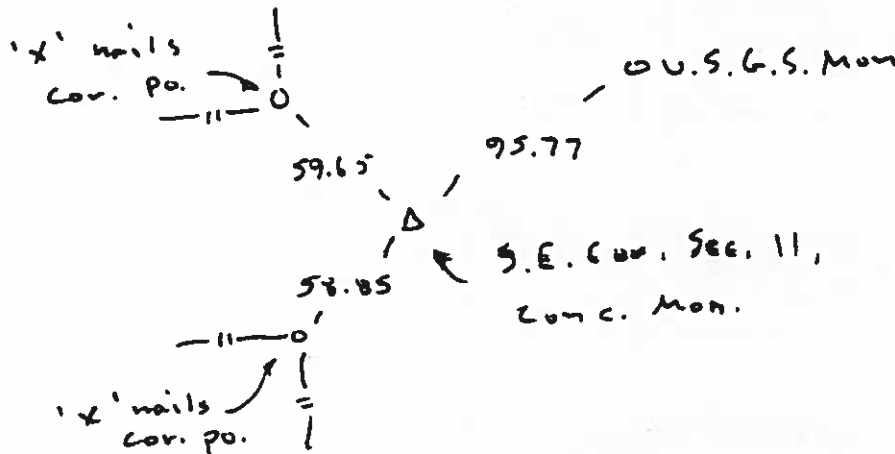 'x' nails
cor. po.
O U.S.G.S. Mon
59.65
95.77
S.E. Cor. Sec. 11,
Conc. Mon.
58.85
'x' nails
cor. po.